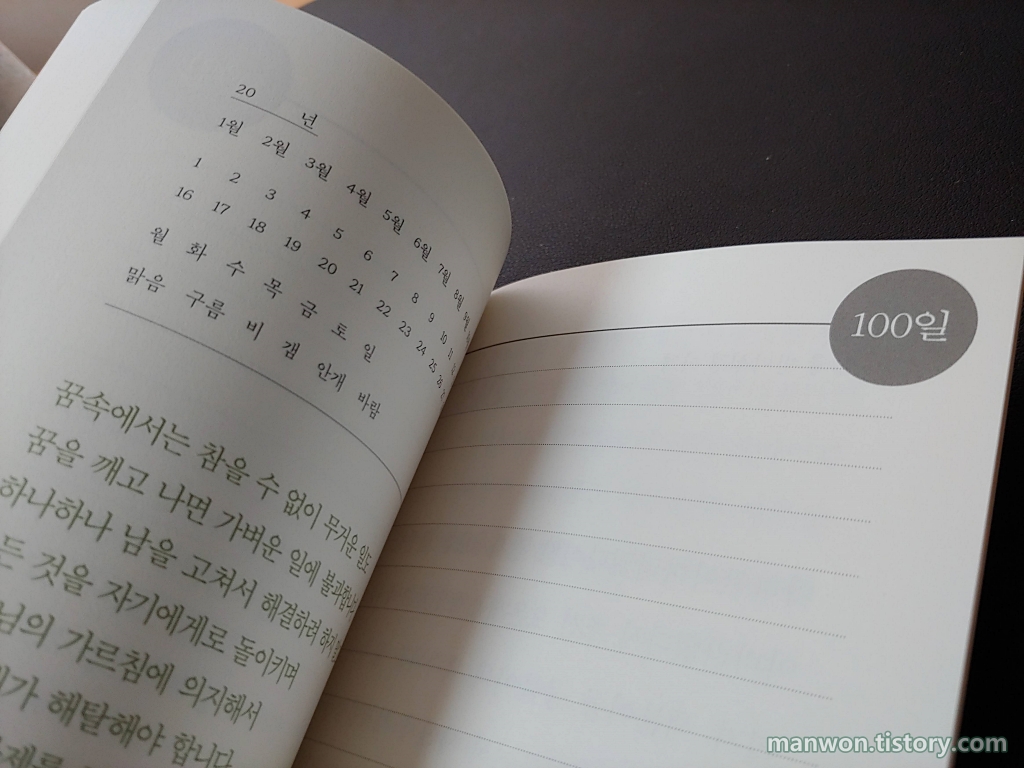 20 년
1월 2월 3월 4월 5월 6월 7월 8월 9월
1 2 3 4 5 6 7 8 9 10 11
16 17 18 19 20 21 22 23 24 25 26
월 화 수 목 금 토 일
맑음 구름 비 갬 안개 바람
꿈속에서는 참을 수 없이 무거운 일도
꿈을 깨고 나면 가벼운 일에 불과합니다
하나하나 남을 고쳐서 해결하려 하지
것을 자기에게로 돌이키며
가르침에 의지해서
해탈해야 합니다
100일
manwon.tistory.com